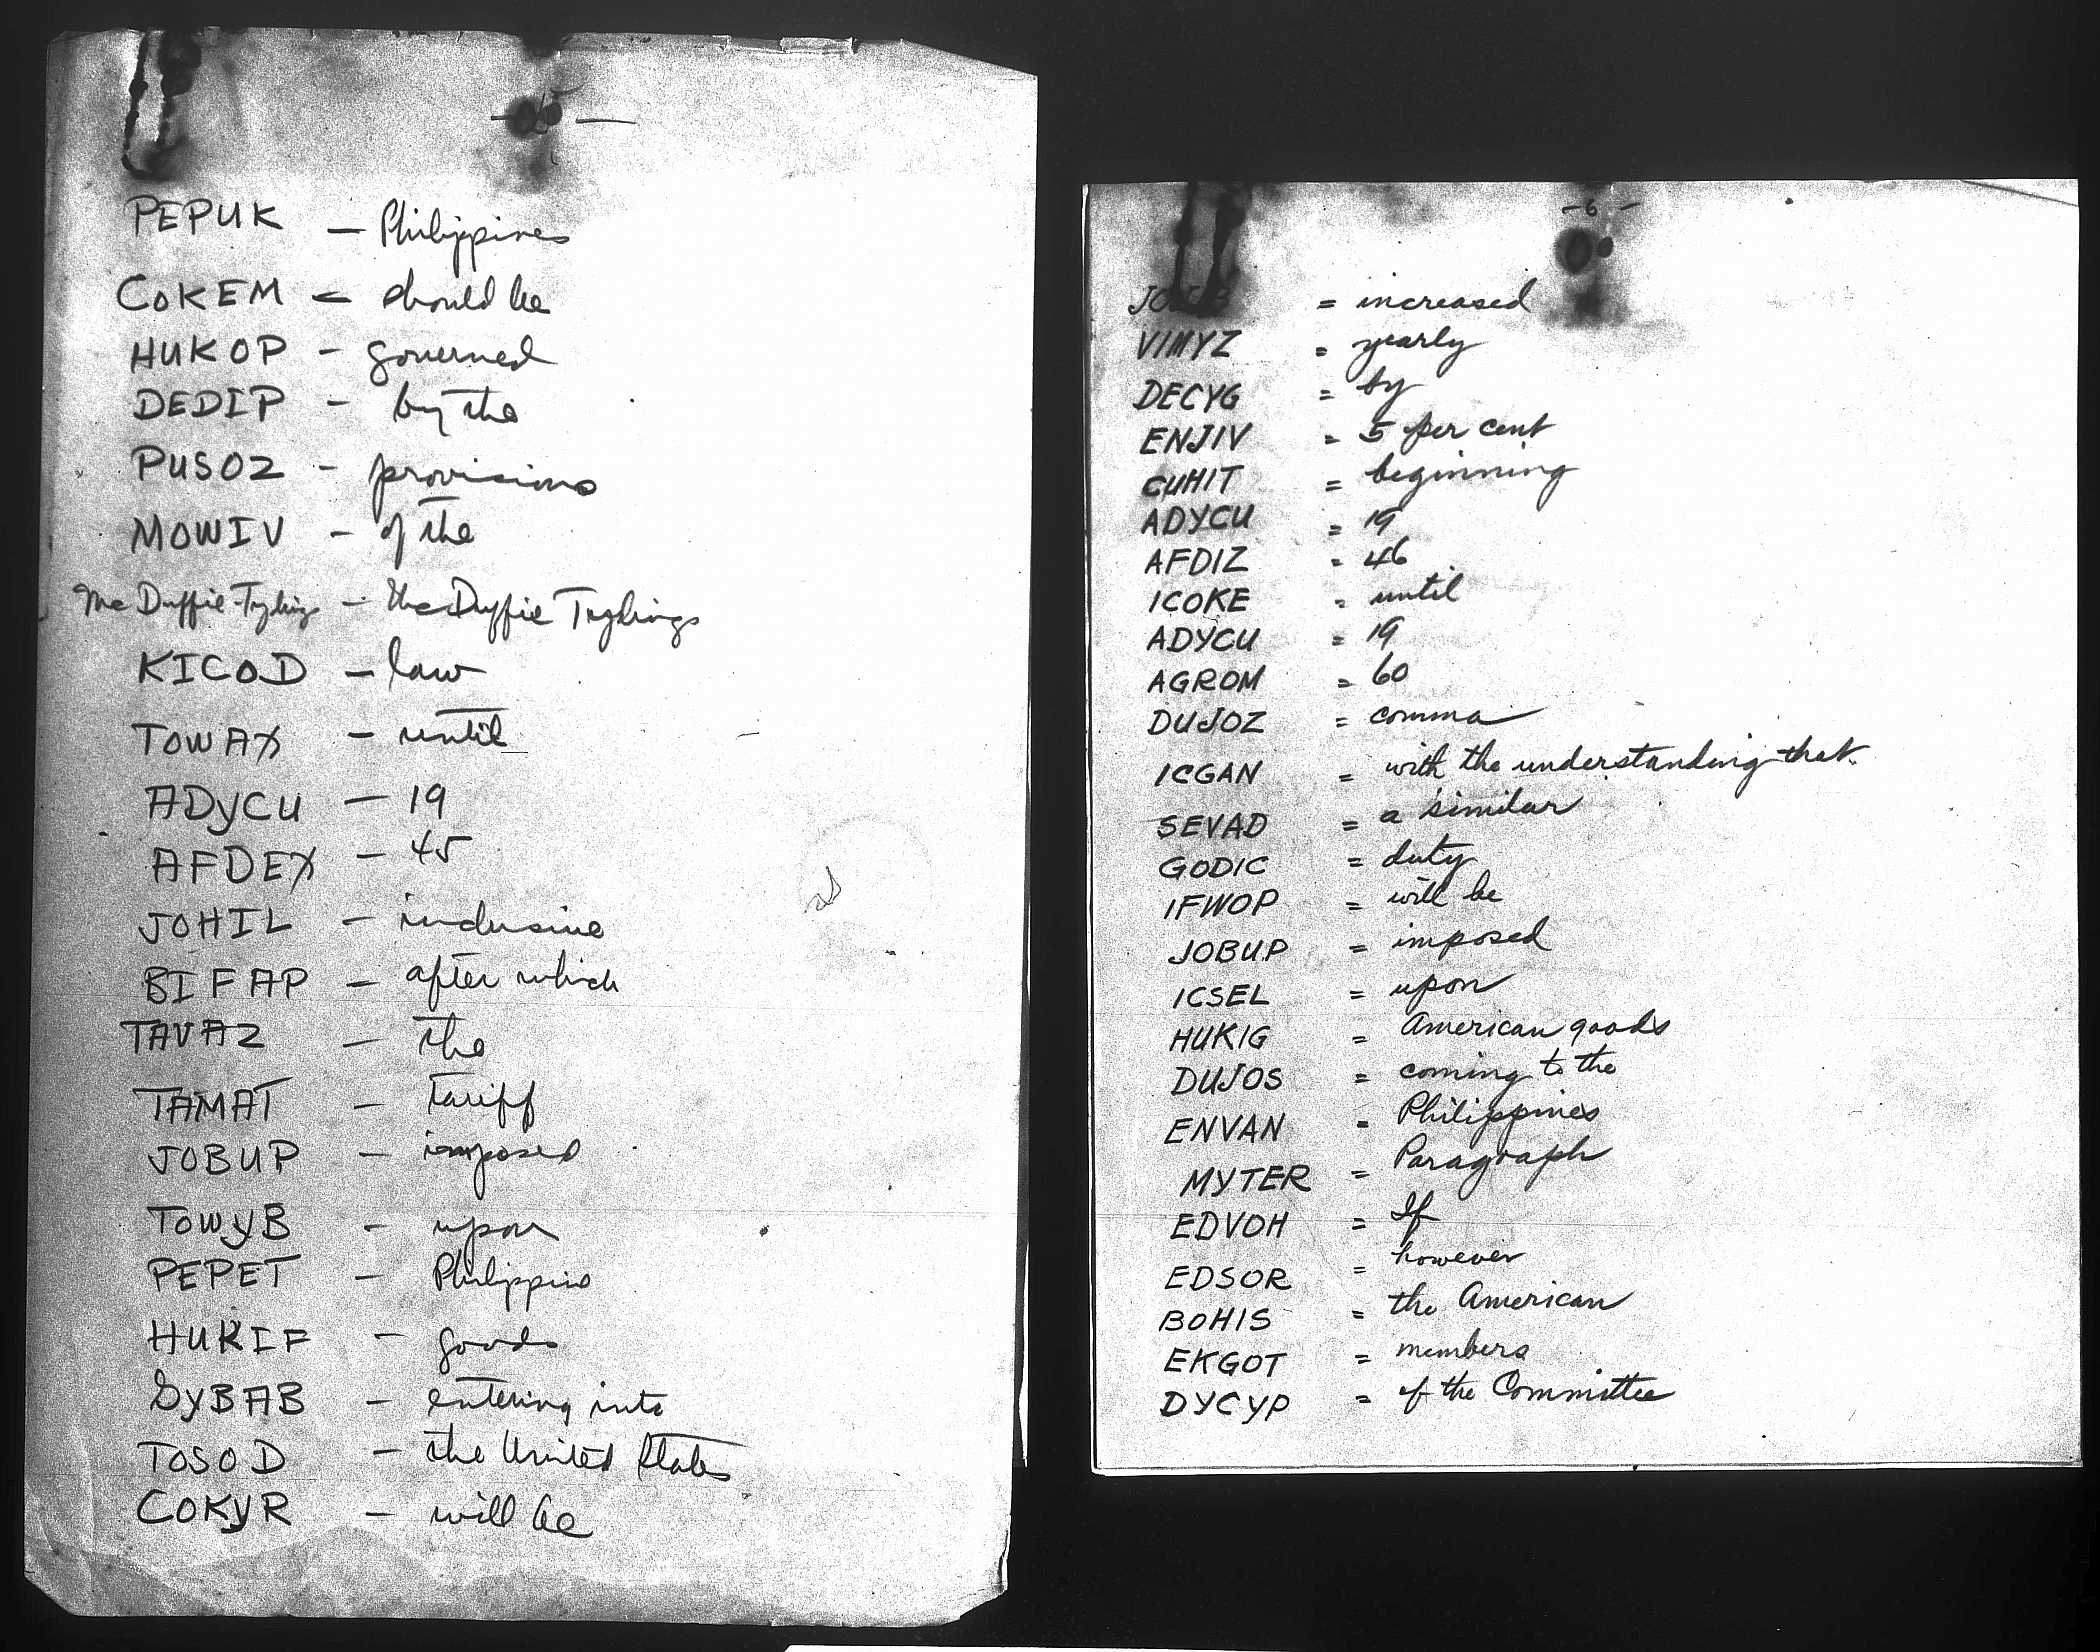 - 5 -
PEPUK - Philippines
COKEM - should be
HUKOP - governed
DEDIP - by the
PUSOZ - provisions
MOWIV - of the
McDuffie-Tydings - the Duffie Tydings
KICOD - law
TOWAX - until
ADYCU - 19
AFDEX - 45
JOHIL - inclusive
BIFAP - after which
TAVAZ - the
TAMAT - Tariff
JOBUP - imposed
TOWYB - upon
PEPET - Philippine
HUKIF - goods
GYBAB - entering into
TOSOD - the United States
COKYR - will be
- 6 -
= increased
VIMYZ = yearly
DECYG = by
ENJIV = 5 per cent
CUHIT = beginning
ADYCU = 19
AFDIZ = 46
ICOKE = until
ADYCU = 19
AGROM = 60
DUJOZ = comma
ICGAN = with the understanding that
SEVAD = a similar
GODIC = duty
IFWOP = will be
JOBUP = imposed
ICSEL = upon
HUKIG = American goods
DUJOS = coming to the
ENVAN = Philippines
MYTER = Paragraph
EDVOH = If
EDSOR = however
BOHIS = the American
EKGOT = members
DYCYP = of the Committee